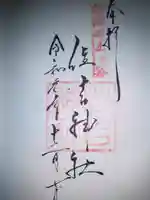 奉拝
住吉神社
令和元年十二月十